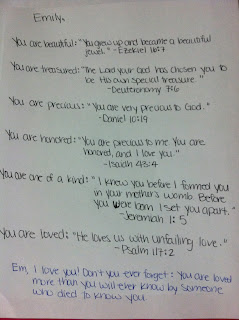 Emily,
You are beautiful: "You grew up and became a beautiful
jewel." - Ezekiel 16:7
You are treasured: "The Lord your God has chosen you to
be His own special treasure."
- Deuteronomy 7:6
You are precious: "You are very precious to God."
- Daniel 10:19
You are honored: "You are precious to me. You are
honored, and I love you."
- Isaiah 43:4
You are one of a kind: "I knew you before I formed you
in your mother's womb. Before
you were born I set you apart."
- Jeremiah 1:5
You are loved: "He loves us with unfailing love."
- Psalm 117:2
Em, I love you! Don't you ever forget: You are loved
more than you will ever know by someone
who died to know you.